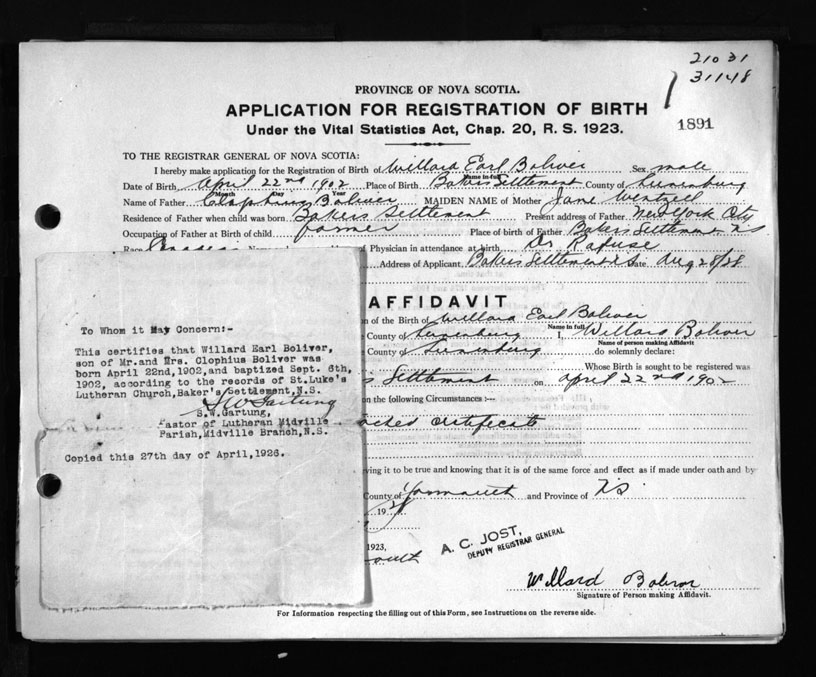 21031
31148
PROVINCE OF NOVA SCOTIA.
APPLICATION FOR REGISTRATION OF BIRTH
Under the Vital Statistics Act, Chap. 20, R. S. 1923.
1891
TO THE REGISTRAR GENERAL OF NOVA SCOTIA:
I hereby make application for the Registration of Birth of Willard Earl Boliver Sex male
Name in full
Date of Birth April 22nd 1902 Place of Birth Bakers Settlement County of Lunenburg
Month Day Year
Name of Father Boliver MAIDEN NAME of Mother Jane Wentzell
Residence of Father when child was born Bakers Settlement Present address of Father New York City
Occupation of Father at Birth of child farmer Place of birth of Father Bakers Settlement NS
Race of Physician in attendance at birth Dr. Rafuse
Address of Applicant Bakers Settlement NS Date Aug 28/28
AFFIDAVIT
n of the Birth of Willard Earl Boliver
Name in full
County of Lunenburg I, Willard Boliver
Name of person making Affidavit
County of Lunenburg do solemnly declare:
Whose Birth is sought to be registered was
s Settlement on April 22nd 1902
on the following Circumstances :—
ached certificate
eving it to be true and knowing that it is of the same force and effect as if made under oath and by
County of Yarmouth and Province of NS
19
1923,
outh
A. C. JOST,
DEPUTY REGISTRAR GENERAL
Willard Boliver
Signature of Person making Affidavit.
For Information respecting the filling out of this Form, see Instructions on the reverse side.
To Whom it May Concern:-
This certifies that Willard Earl Boliver,
son of Mr.and Mrs. Clophius Boliver was
born April 22nd,1902,and baptized Sept. 6th,
1902, according to the records of St.Luke's
Lutheran Church,Baker's Settlement,N.S.
S W Gartung
S.W.Gartung,
Pastor of Lutheran Midville
Parish,Midville Branch,N.S.
Copied this 27th day of April,1926.